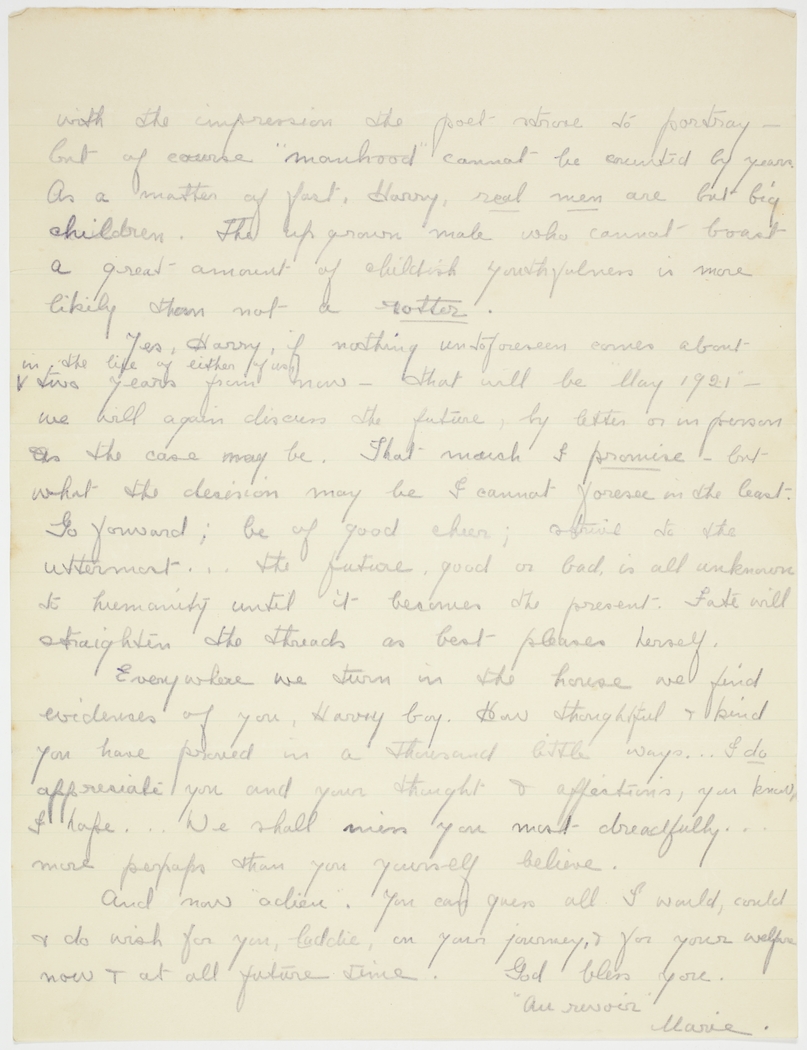 with the impression the poet strove to portray —
but of course "manhood" cannot be counted by years.
As a matter of fact, Harry, real men are but big
children. The up grown male who cannot boast
a great amount of childish youthfulness is more
likely than not a rotter.
Yes, Harry, if nothing untoforeseen comes about
in the life of either of us,
& two years from now — that will be May 1921 —
we will again discuss the future, by letter or in person
as the case may be. That much I promise - but
what the decision may be I cannot foresee in the least.
Go forward; be of good cheer; strive to the
uttermost... the future, good or bad, is all unknown
to humanity until it becomes the present. Fate will
straighten the threads as best pleases herself.
Everywhere we turn in the house we find
evidenses of you, Harry boy. How thoughtful & kind
you have proved in a thousand little ways... I do
appresiate you and your thought & affections, you know,
I hope... We shall miss you most dreadfully...
more perhaps than you yourself believe.
And now "adieu". You can guess all I would, could
& do wish for you, laddie, on your journey, & for your welfare
now & at all future time. God bless you.
"Au revoir"
Marie.